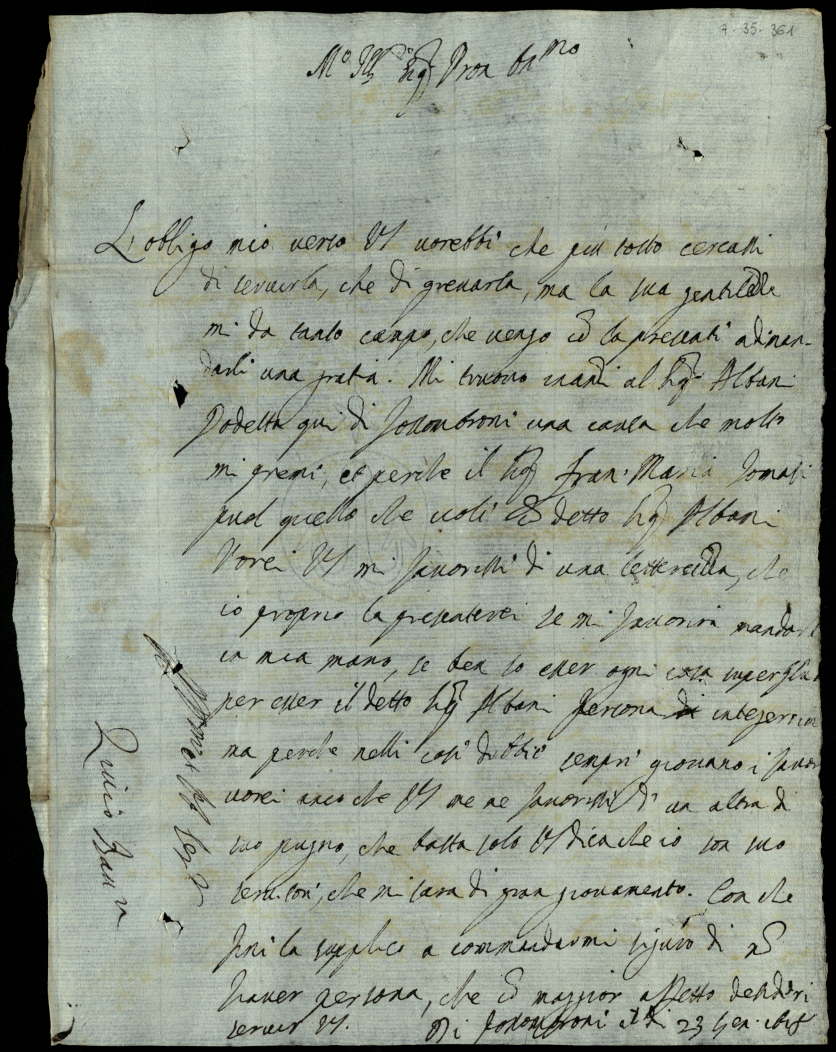 7-35-361
M.o Ill.re Sig.r Pron
L'obligo mio verso VS vorebbi che più tosto cercassi
di servirla, che di gravarla, ma la sua gentilezza
mi da tanto campo, che vengo cõ la presenti adiman-
darli una gratia. Mi truovo inanzi al Sig.r Albani
Podesta qui di Fossombroni una causa che molto
mi premi, et perche il Sig.r Fran. Maria
puol quello che voli cõ detto Sig.r Albani
Vorei VS mi favorissi di una letterina, che
io proprio la presenterei se mi favorirà mandar
in mia mano, se ben so esser ogni cosa superflua
per esser il detto Sig.r Albani persona di integerrim
ma perche nelli casi dubbii sempri giovano i favor
vorei anco che VS me ne favorissi di un altra di
suo pugno, che basta solo VS dica che io son suo
servitori, che mi sara di gran giovamento. Con che
fini la supplico a commandarmi sicuro di nõ
haver persona, che cõ maggior affetto desideri
servir VS. Di Fossombroni il di 23 Gen.